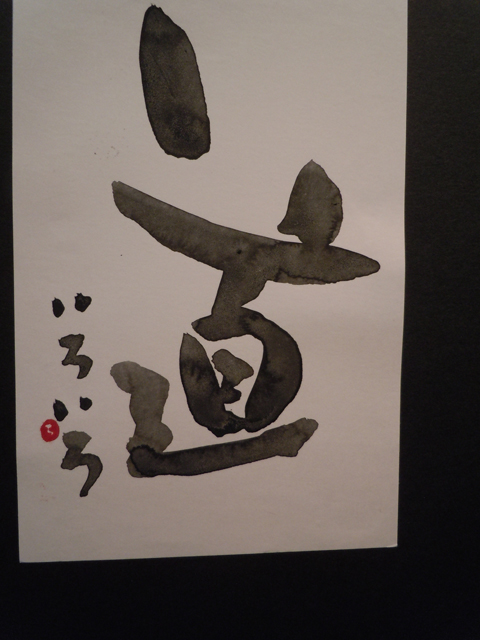 道
いろいろ